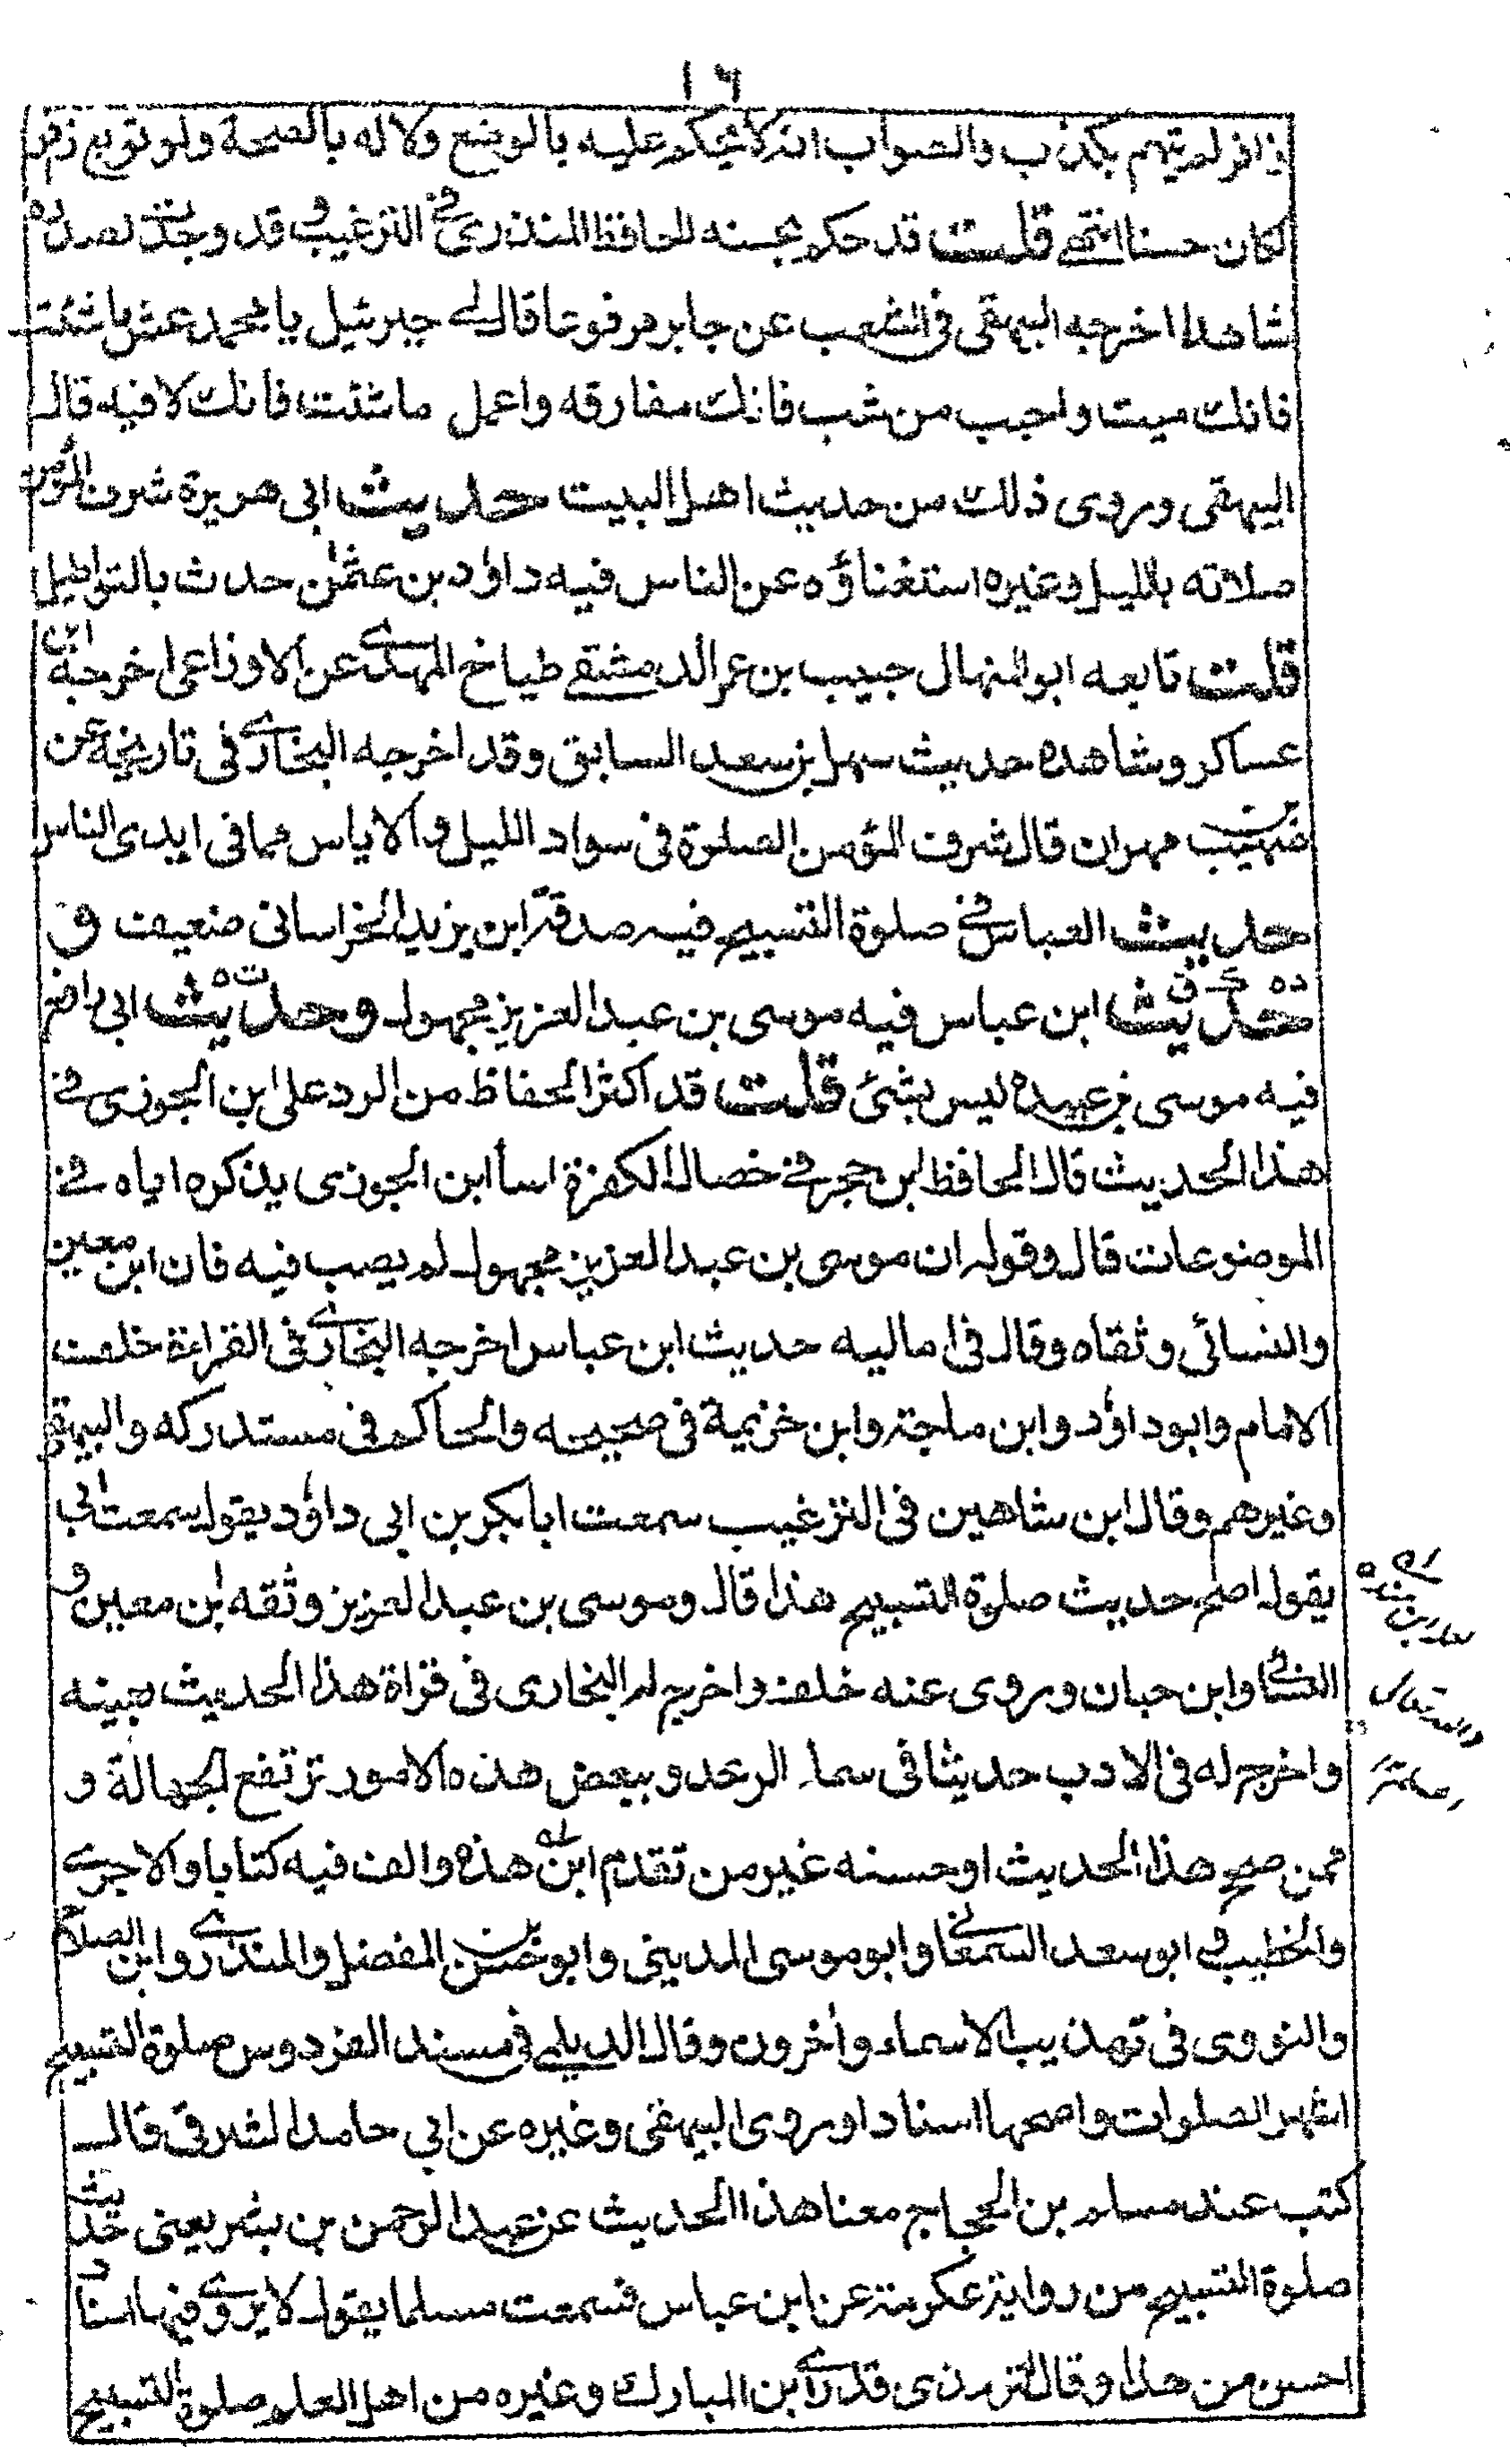 ١٦
زافر لم يتهم بكذب والصواب انه لا يحكم عليه بالوضع ولا له بالصحة ولو توبع
لكان حسنا انتهى قلت قد حكم بحسنه الحافظ المنذرى فى الترغيب و قد وجدت لصدره
شاهدا اخرجه البيهقى فى الشعب عن جابر مرفوعا قال لى جبرئيل يا محمد عش ما شئت
فانك ميت واحبب من شب فانك مفارقه واعمل ما شئت فانك لاقيه قال
البيهقى وروى ذلك من حديث اهل البيت حديث ابى هريرة شرف المؤمن
صلاته بالليل وغيره استغناؤه عن الناس فيه داؤد بن عثمٰن حدث بالبواطيل
قلت تابعه ابو المنهال حبيب بن عمر الدمشقى طباخ المهدى عن الاوزاعى اخرجه ابن
عساكر وشاهده حديث سهل بن سعد السابق وقد اخرجه البخارى فى تاريخه عن
مهران قال شرف المؤمن الصلوة فى سواد الليل والاياس مما فى ايدى الناس
حديث العباس فى صلوة التسبيح فيه صدقة ابن يزيد الخراسانى ضعيف و
حديث ابن عباس فيه موسى بن عبد العزيز مجهول وحديث ابى رافع
فيه موسى بن عبيده ليس بشئ قلت قد اكثر الحفاظ من الرد على ابن الجوزى فى
هذا الحديث قال الحافظ ابن حجر فى خصال الكفرة اسأ ابن الجوزى يذكره اياه فى
الموضوعات قال وقوله ان موسى بن عبد العزيز مجهول لم يصب فيه فان ابن معين
والنسائى وثقاه وقال فى اماليه حديث ابن عباس اخرجه البخارى فى القراءة خلف
الامام وابو داؤد وابن ماجة وابن خزيمة فى صحيحه والحاكم فى مستدركه والبيهقى
وغيرهم وقال ابن شاهين فى الترغيب سمعت ابا بكر بن ابى داؤد يقول سمعت ابى
يقول اصح حديث صلوة التسبيح هذا قال وموسى بن عبد العزيز وثقه ابن معين و
النسائى وابن حبان وروى عنه خلف واخرج له البخارى فى قراة هذا الحديث بعينه
واخرج له فى الادب حديثا فى سماء الرعد وببعض هذه الامور ترتفع الجهالة و
ممن صحح هذا الحديث او حسنه غير من تقدم ابن هذه والف فيه كتابا والاجرى
والخطيب و ابو سعد السمعانى وابو موسى المدينى وابو حسن بن المفضل والمنذرى وابن الصلاح
والنووى فى تهذيب الاسماء واٰخرون وقال الديلمى فى مسند الفردوس صلوة التسبيح
اشهر الصلوات واصحها اسنادا وروى البيهقى وغيره عن ابى حامد الشرقى قال
كتب عند مسلم بن الحجاج معنا هذا الحديث عن عبد الرحمن بن بشر يعنى حديث
صلوة التسبيح من رواية عكرمة عن ابن عباس فسمعت مسلما يقول لا يروى فيها اسناد
احسن من هذا وقال الترمذى قد رأى ابن المبارك وغيره من اهل العلم صلوة التسبيح